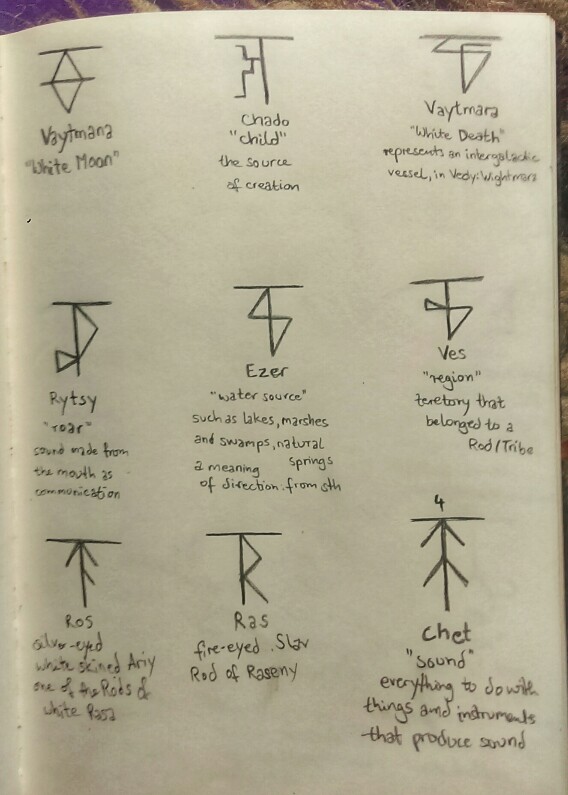 Vaytmana
"White Moon"
Chado
"child"
the source
of creation
Vaytmara
"White Death"
represents an intergalactic
vessel, in Vedy: Wightmara
Rytsy
"roar"
sound made from
the mouth as
communication
Ezer
"water source"
such as lakes, marshes
and swamps, natural
springs
a meaning
of direction from sth
Ves
"region"
teretory that
belonged to a
Rod/Tribe
Ros
silver-eyed
white skined Ariy
one of the Rods of
white Rasa
Ras
fire-eyed Slav
Rod of Raseny
4
Chet
"sound"
everything to do with
things and instruments
that produce sound